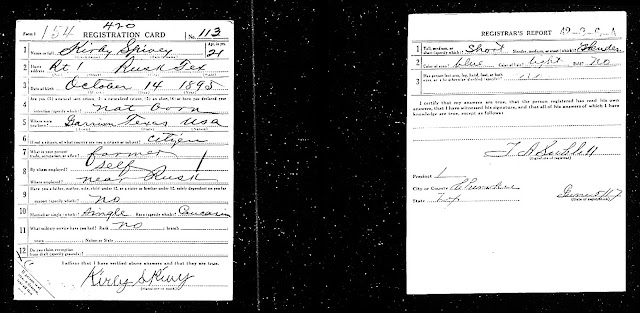 420
Form 1 154 REGISTRATION CARD No. 113
1 Name in full Kirby Spivey Age, in yrs. 21
2 Home address Rt 1 Rusk Tex
3 Date of birth October 14 1895
4 Are you (1) a natural-born citizen, (2) a naturalized citizen, (3) an alien, (4) or have you declared your
intention (specify which)? nat born
5 Where were you born? Garrison Texas USA
6 If not a citizen, of what country are you a citizen or subject? citizen
7 What is your present trade, occupation, or office? farmer
8 By whom employed? self
Where employed? near Rusk
9 Have you a father, mother, wife, child under 12, or a sister or brother under 12, solely dependent on you for
support (specify which)? no
10 Married or single (which)? Single Race (specify which)? Caucasian
11 What military service have you had? Rank no branch
years Nation or State
12 Do you claim exemption from draft (specify grounds)?
I affirm that I have verified above answers and that they are true.
Kirby Spivey
REGISTRAR'S REPORT
1 Tall, medium, or short (specify which)? Short Slender, medium, or stout (which)? Slender
2 Color of eyes? blue Color of hair? light Bald? No
3 Has person lost arm, leg, hand, foot, or both eyes, or is he otherwise disabled (specify)?
I certify that my answers are true, that the person registered has read his own
answers, that I have witnessed his signature, and that all of his answers of which I have
knowledge are true, except as follows:
(Signature of registrar)
Precinct 1
City or County Cherokee
State Tex
June 5 1917
(Date of registration)